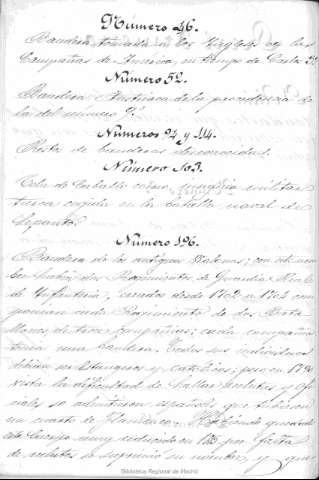 Número 46.
Bandera tomada en las
Campañas de en tiempo de Carlos 3º.
Número 52.
Bandera Austriaca de la procedencia de
la del número 7º.
Números 94 y 114.
Resto de banderas desconocidas.
Número 103.
Cola de Caballo insignia militar
turca cogida en la batalla naval de
Lepanto.
Número 196.
Bandera de las antiguas Walonas; con este nom-
bre había dos Regimientos de Guardia Real
de Infantería, creados desde 1702 a 1704 com-
ponian cada Regimiento de dos Bata-
llones de trece compañias; cada compañia
tenia una bandera. Todos sus individuos
debian ser Estrangeros y católicos; pero en 1790
vista la dificultad de hallar reclutas y ofi-
ciales se admitieron españoles que tubieran
un cuarto de Flandes. quedado
este Cuerpo muy reducido en por falta
de reclutas se suprimió su nombre y que
Biblioteca Regional de Madrid